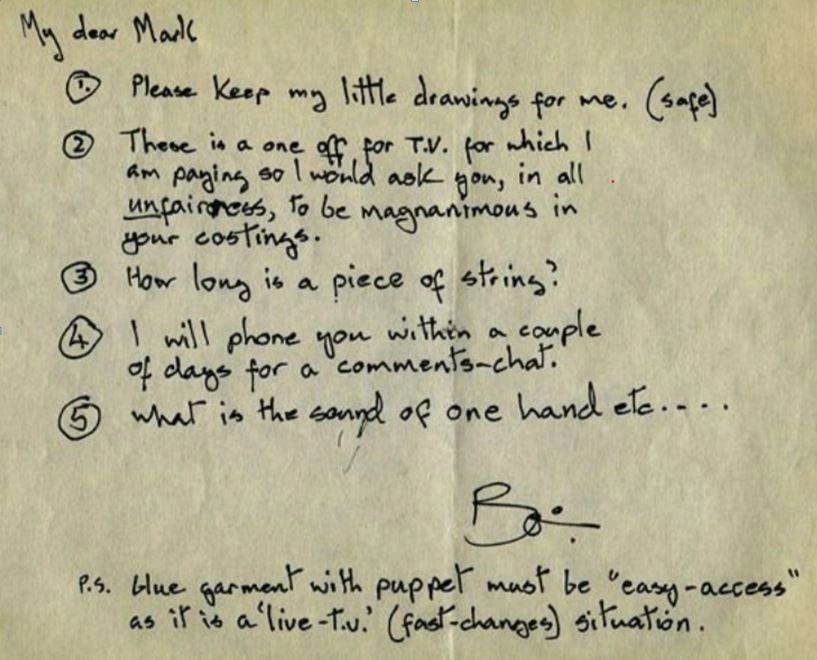 My dear Mark
① Please Keep my little drawings for me. (safe)
② These is a one off for T.V. for which I
am paying so I would ask you, in all
unfairness, to be magnanimous in
your costings.
③ How long is a piece of string?
④ I will phone you within a couple
of days for a comments-chat.
⑤ what is the sound of one hand etc....
P.S. blue garment with puppet must be "easy-access"
as it is a 'live-t.v.' (fast-changes) situation.